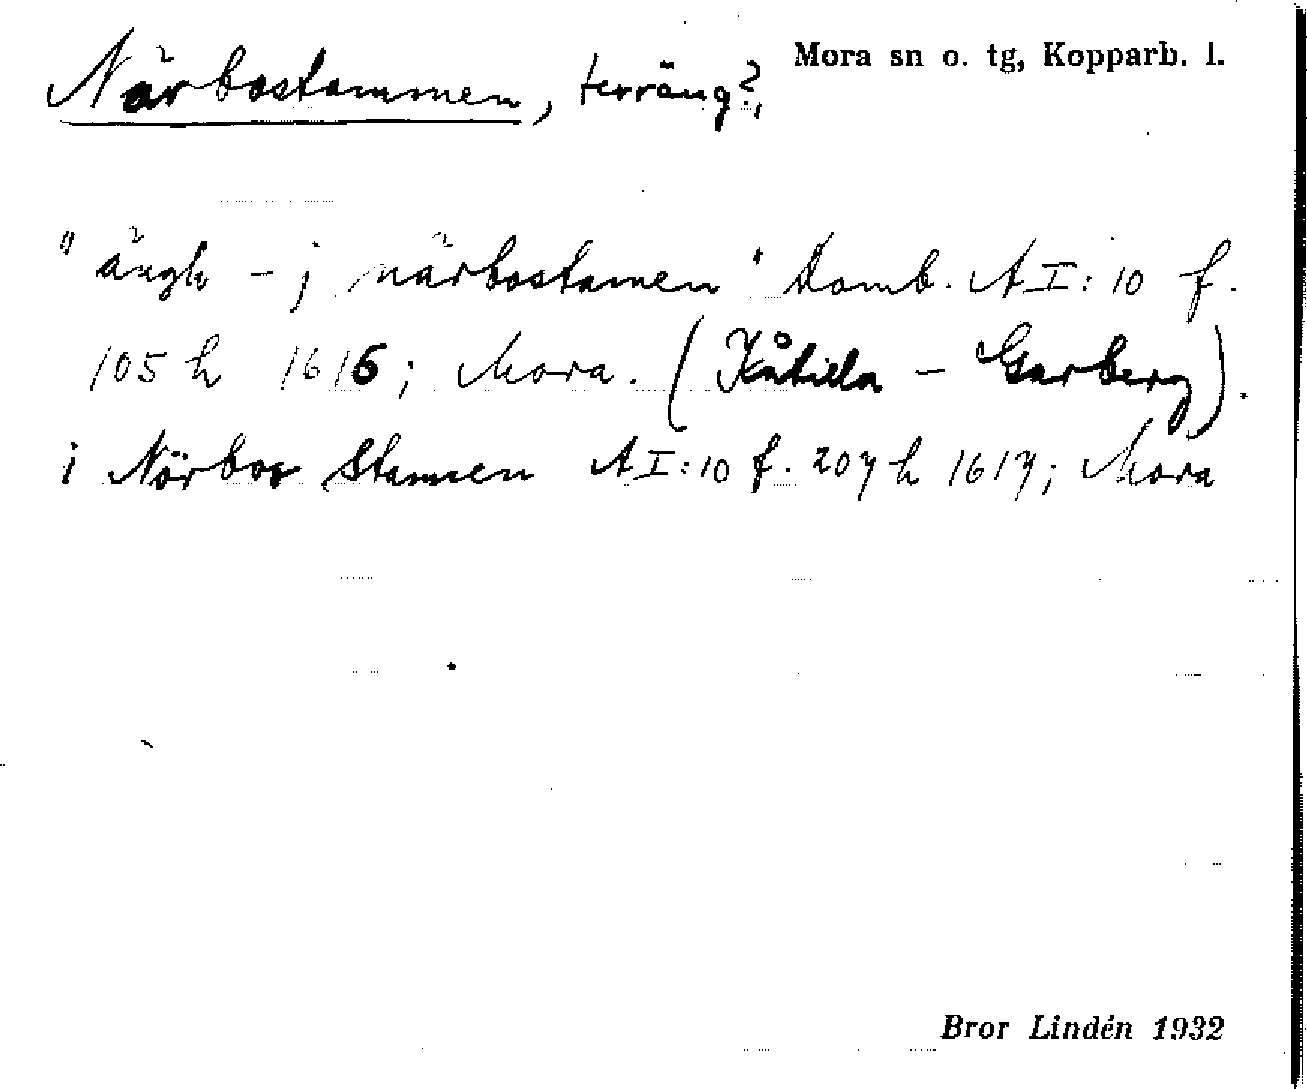 Närbostammen, terräng?, Mora sn o. tg, Kopparb. l.
"ängh - j närbostamen" Domb. A I: 10 f.
105 h 1616; Mora. (Kåtilla - Garberg).
i Nörbos Stamen A I: 10 f. 207 h 1617; Mora
Bror Lindén 1932